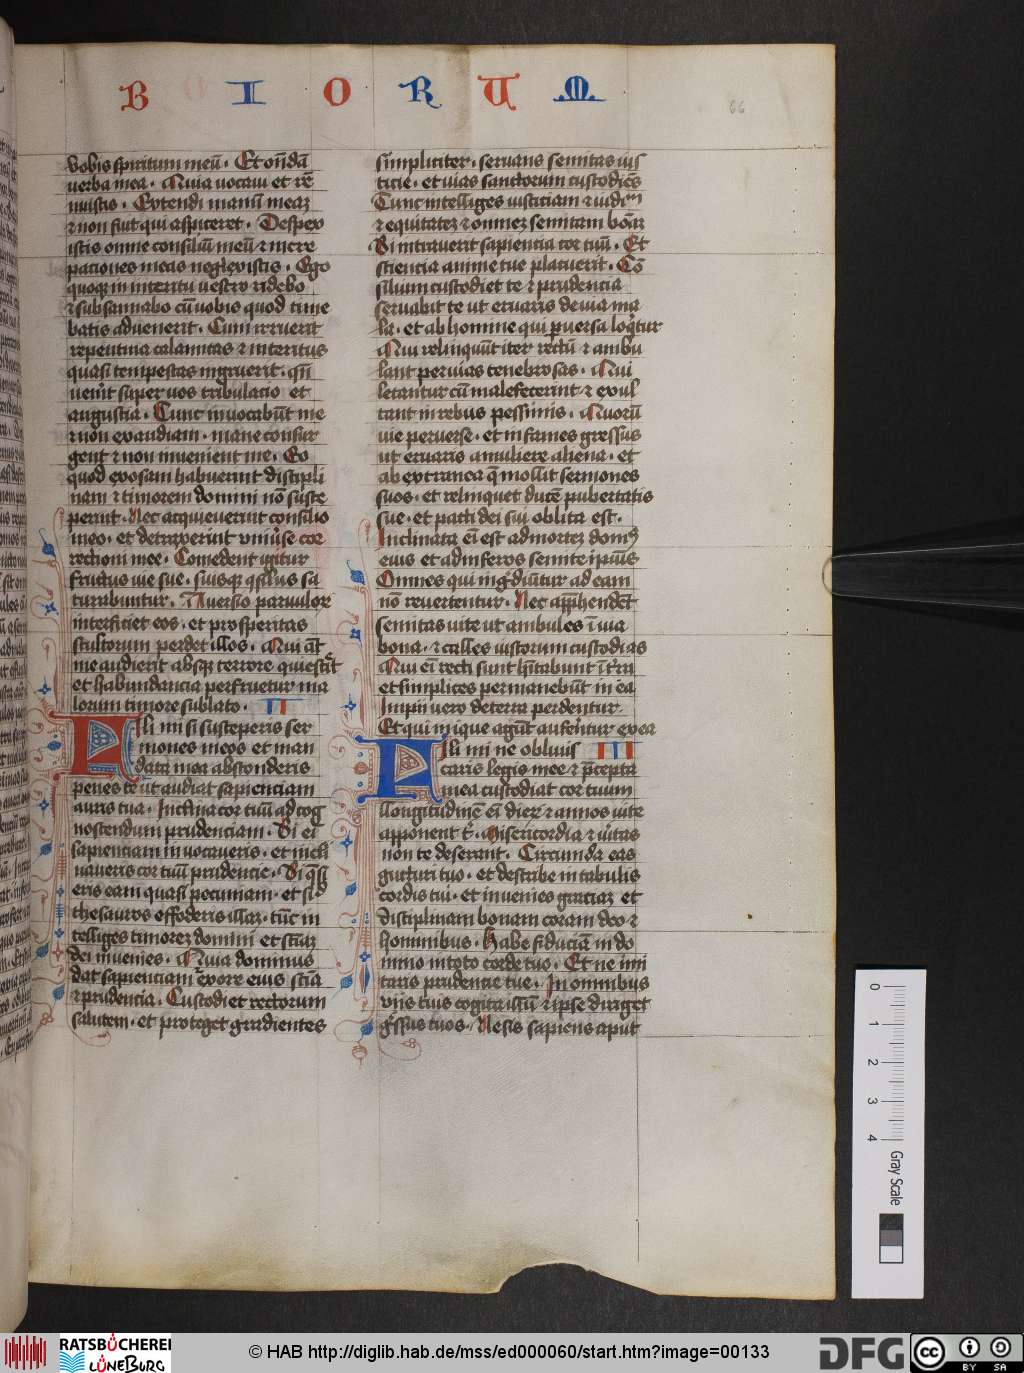 B I O R U M
66
vobis spiritum meū · Et oñdā
verba mea · Quia vocavi et rē
nuistis · Extendi manū meaȝ
⁊ non fuit qui aspiceret · Despex
istis omne consiliū meū ⁊ incre
pationes meas neglexistis · Ego
quoqȝ in interitu vestro ridebo
⁊ subsannabo cū vobis quod time
batis advenerit · Cum irruerit
repentina calamitas ⁊ interitus
quasi tempestas ingruerit · qñ
venit super vos tribulacio et
angustia · Tunc invocabūt me
⁊ non exaudiam · mane consur
gent ⁊ non invenient me · Eo
quod exosam habuerint discipli
nam ⁊ timorem domini nō susce
perint · Nec acquieverint consilio
meo · et detraxerint universe cor
rectioni mee · Comedent igitur
fructus vie sue · suisqȝ consiliis sa
turabuntur · Aversio parvulorꝝ
interficiet eos · et prosperitas
stultorum perdet illos · Qui aūt
me audierit absqȝ terrore quiescet
et habundancia perfruetur ma
lorum timore sublato · II
Fili mi si susceperis ser
mones meos et man
data mea absconderis
penes te ut audiat sapienciam
auris tua · Inclina cor tuū ad cog
noscendum prudenciam · Si eī
sapienciam invocaveris · et incli
naveris cor tuū prudencie · Si q̄si
eris eam quasi pecuniam · et sic̄
thesauros effoderis illaȝ · tūc in
telliges timoreȝ domini et sciāȝ
dei invenies · Quia dominus
dat sapienciam ⁊ ex ore eius sciā
⁊ prudencia · Custodiet rectorum
salutem · et proteget gradientes
simpliciter · servans semitas ius
ticie · et vias sanctorum custodiēs
Tunc intelliges iusticiam ⁊ iudiciū
⁊ equitateȝ ⁊ omneȝ semitam bonā
Si intraverit sapiencia cor tuū · Et
sciencia anime tue placuerit · Cō
silium custodiet te ⁊ prudencia
servabit te ut eruaris de via ma
la · et ab homine qui perversa loquitur
Qui relinquūt iter rectū ⁊ ambu
lant per vias tenebrosas · Qui
letantur cū malefecerint ⁊ exul
tant in rebus pessimis · Quorū
vie perverse · et infames gressus
ut eruaris a muliere aliena · et
ab extranea q̄ mollit sermones
suos · et relinquet ducē pubertatis
sue · et pacti dei sui oblita est ·
Inclinata eī est ad morteȝ domꝰ
eius et ad inferos semite ipsius
Omnes qui ingrediūtur ad eam
nō revertentur · Nec apprehendēt
semitas vite ut ambules ī via
bona · ⁊ calles iustorum custodias
Qui eī recti sunt habitabunt ī terra
et simplices permanebūt in ea
Impii vero de terra perdentur
Et qui inique agūt auferentur ex ea
Fili mi ne oblivis III
caris legis mee ⁊ p̄cepta
mea custodiat cor tuum
Longitudinē eī dierꝝ ⁊ annos vite
apponent t̄ · Misericordia ⁊ veritas
non te deserant · Circumda eas
gutturi tuo · et describe in tabulis
cordis tui · et invenies graciaȝ et
disciplinam bonam coram deo ⁊
hominibus · Habe fiduciā in do
mino in toto corde tuo · Et ne inni
taris prudentie tue · In omnibus
viis tuis cogita illū ⁊ ipse diriget
gressus tuos · Ne sis sapiens aput
0 1 2 3 4
Gray Scale
RATSBÜCHEREI
LÜNEBURG
© HAB http://diglib.hab.de/mss/ed000060/start.htm?image=00133
DFG
cc BY SA